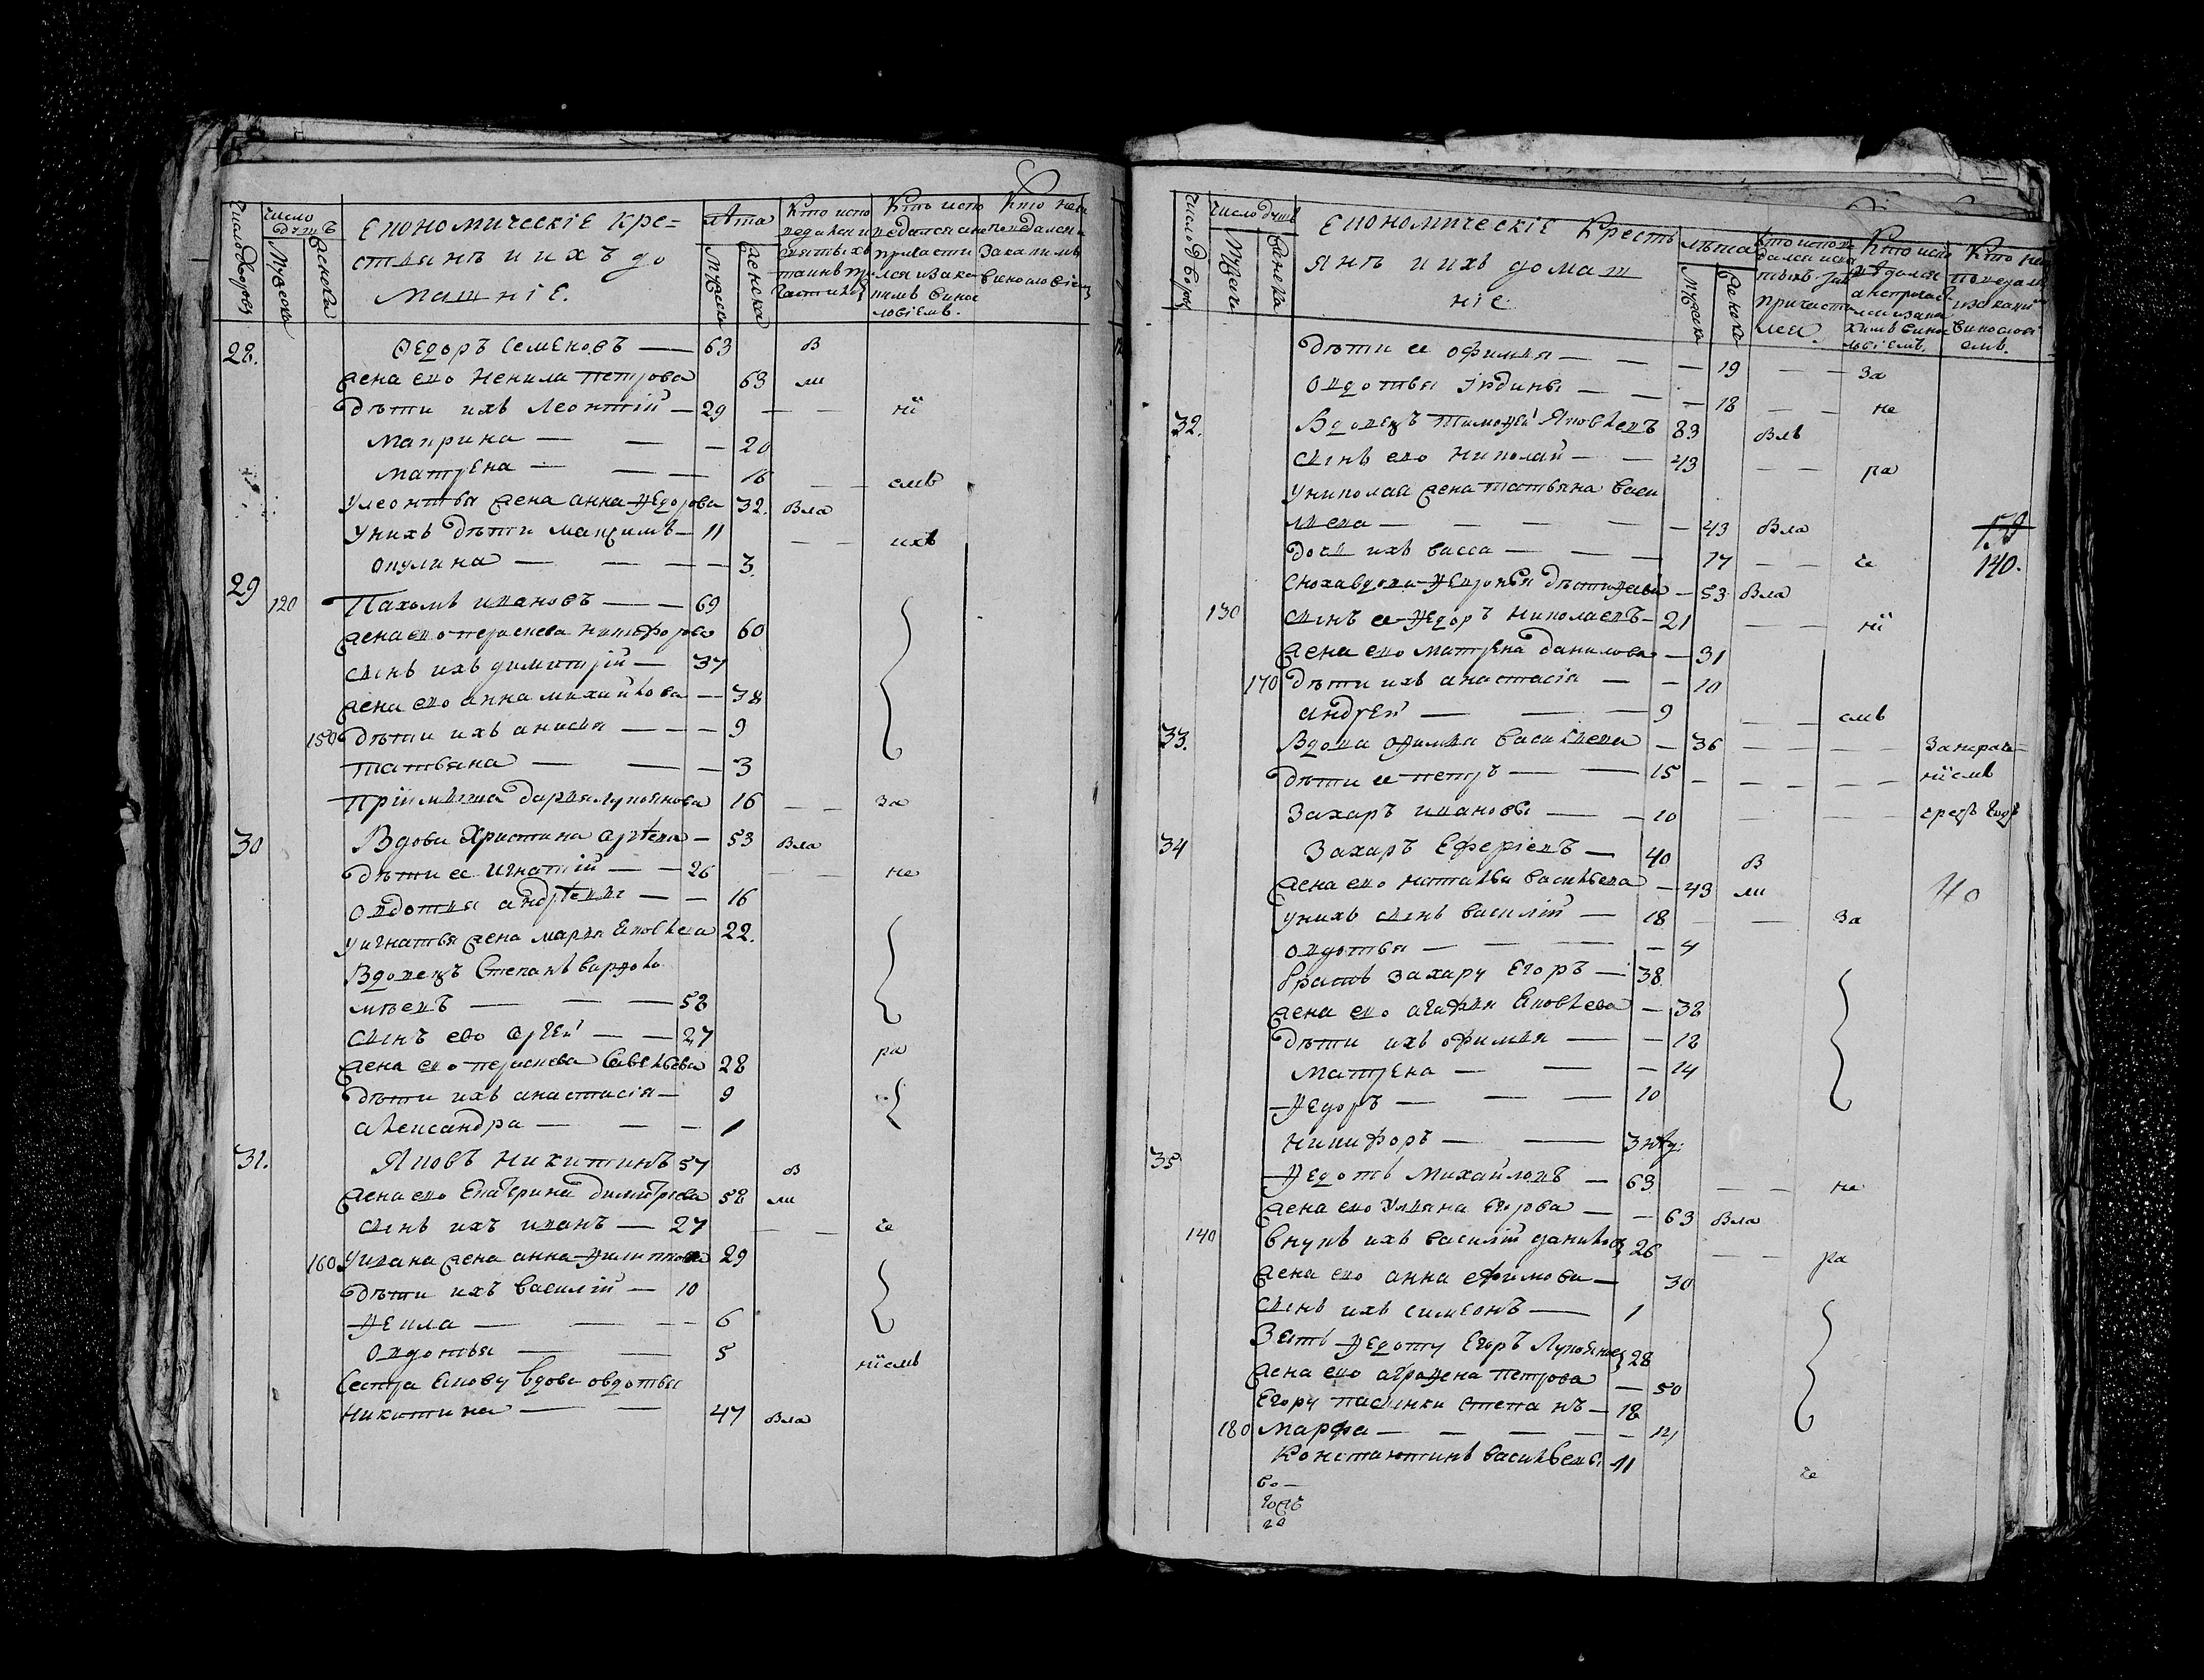 число дворовъ
число душъ
Мужеска
Женска
Економическіе кре=
стьянъ и ихъ до
машніе.
лѣта
Мужеска
Женска
Кто испо
Кто испо
Кто не
28. Ѳедоръ Семеновъ — 63 в
жена ево Ненила Петрова 63 ли
дѣти ихъ Леонтій — 29 — — нї
Маврина — — — 20
Матрена — — — 16 — — емъ
у Леонтья жена Анна Ѳедорова 32. вла
у нихъ дѣти Максимъ — 11 — — ихъ
Окулина — — — — 3.
29 120 Пахомъ Ивановъ — — 69
жена ево Перасковья Никифорова 60
сынъ ихъ Димитрій — 37
жена ево Анна Михайлова — 38
150 дѣти ихъ Анисья — — — 9
Татьяна — — — 3
Пріимышка Дарья Лукоянова 16 — — за
30 Вдова Христина Сергѣева — 53 вла
дѣти ее Игнатій — — 26 — — не
Овдотья Андрѣевы — — 16
у Игнатья жена Марья Яковлева 22.
Вдовецъ Степанъ Варѳоло
мѣевъ — — — 58
сынъ ево Сергей — — 27
жена ево Перасковья Савельева 28 ра
дѣти ихъ Анастасія — 9
Александра — — — 1
31. Яковъ Никитинъ 57 в
жена ево Екатерина Димитрева 58 ли
сынъ ихъ Иванъ — 27 — — че
160 у Ивана жена Анна Филиппова 29
дѣти ихъ Василій — 10
Ѳекла — — — — 6
Овдотья — — 5 нїемъ
Сестра Якову вдова Овдотья
Никитина — — 47 вла
число дворовъ
число душъ
Мужеска
Женска
Економическіе Кресть
янъ и ихъ домаш
ніе.
лѣта
Мужеска
Женска
причасти
лся.
Дѣти ее Офимья — — — 19 — — за
Овдотья — — — 18 — — не
32. Вдовецъ Тимоѳей Яковлевъ 83 влъ
сынъ ево Николай — — 43 — — ра
у Николая жена Татьяна Васи
льева — — — — — 43 вла
дочь ихъ Васса — — — 17 — — че
140.
сноха вдова Ѳевронья — 53 вла
130 сынъ ее Ѳедоръ Николаевъ — 21 — — нї
жена ево Матрена Данилова — 31
170 дѣти ихъ Анастасія — — 10
Андрей — — — 9 — — емъ
33. Вдова Офимья Васильева — 36 — — — —
дѣти ее Петръ — — 15 — — — — нїемъ
Захаръ Ивановы — — 10 — — —
34 Захаръ — 40 в
жена ево Наталья Васильева — 43 ли
40
у нихъ сынъ Василій — 18 — — за
Овдотья — — — — 4
братъ Захару Егоръ — 38.
жена ево Агафья Яковлева — 38
дѣти ихъ Офимья — — 18
Матрена — — — 14
Ѳедоръ — — — 10
Никифоръ — — 3 нед:
35 Ѳедотъ Михайловъ — 63 — — не
жена ево Ульяна Егорова — — 63 вла
140 внукъ ихъ Василій Даниловъ 26 — — ра
жена ево Анна Ефимова — 30
сынъ ихъ Симеонъ — 1
Зять Ѳедоту Егоръ Лукояновъ 28
жена ево Аграфена Петрова — 50
Егору пасынки Степанъ — 18
180 Марфа — — — — — 14
Константинъ Васильевы 11 че